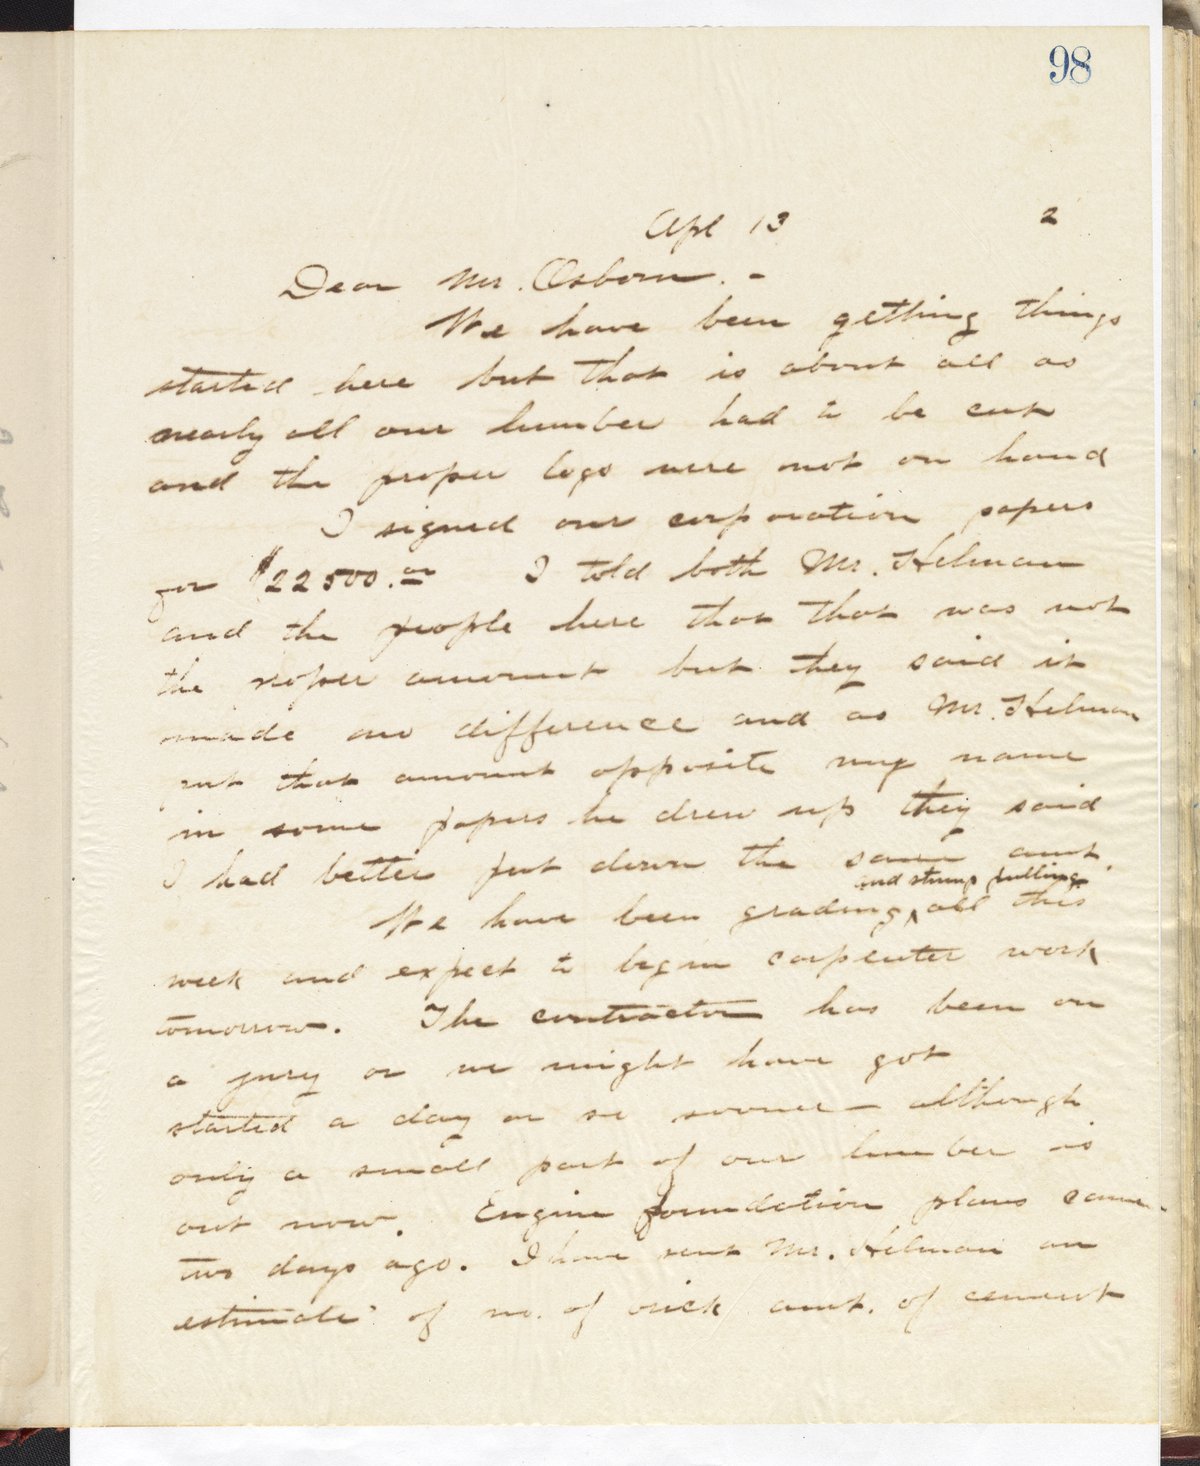 98
Apl 13 2
Dear Mr. Osborn. -
We have been getting things
started here but that is about all as
nearly all our lumber had to be cut
and the proper logs were not on hand
I signed our corporation papers
for $22500.00 I told both Mr. Helman
and the people here that that was not
the proper amount but they said it
made no difference and as Mr. Helman
put that amount opposite my name
in some papers he drew up they said
I had better put down the same amt.
and stump pulling
We have been grading ^ all this
week and expect to begin carpenter work
tomorrow. The contractor has been on
a jury or we might have got
started a day or so sooner — although
only a small part of our lumber is
out now. Engine foundation plans came
two days ago. I have sent Mr. Helman an
estimate of no. of brick amt. of cement